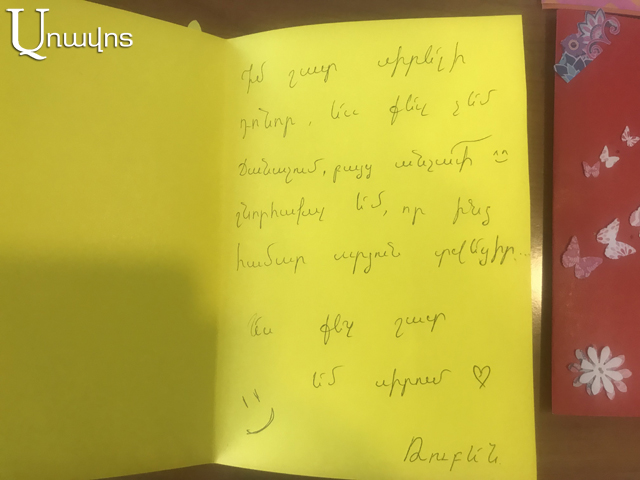 Առավոտ
Իմ շատ սիրելի
դոնոր, ես քեզ չեմ
ճանաչում, բայց անչափ
շնորհակալ եմ, որ ինձ
համար արյուն տվեցիր...
Ես քեզ շատ
եմ սիրում ♡
Ռուբեն